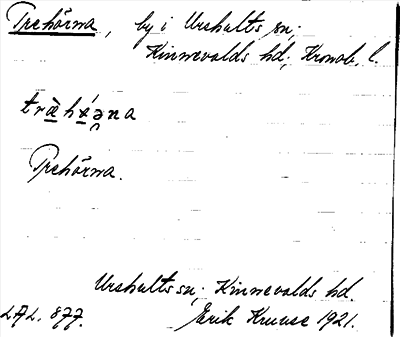 Trehörna, by i Urshults sn;
Kinnevalds hd; Kronob. l.
træ̀hǿə̯na
Trehörna.
Urshults sn; Kinnevalds hd.
LAL. 877. Erik Kruuse 1921.